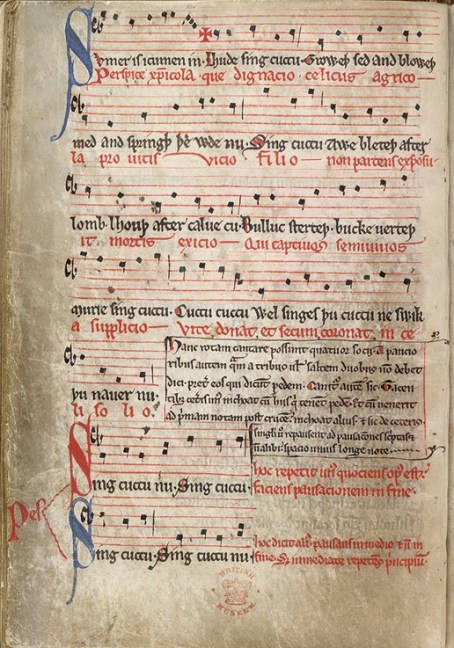 Sumer is icumen in. Lhude sing cuccu. Groweþ sed and bloweþ
Perspice xp̄icola que dignacio celicus agrico
med and springþ þe wde nu. Sing cuccu Awe bleteþ after
la pro uitis vicio filio non parcens exposu
lomb lhouþ after calue cu. Bulluc sterteþ. bucke uerteþ
it mortis exicio Qui captiuos semiuiuos
murie sing cuccu. Cuccu cuccu Wel singes þu cuccu ne swik
a supplicio Vite donat et secum coronat in ce
þu nauer nu.
li solio.
Hanc rotam cantare possunt quatuor socij. A paucio
ribus autem qm̄ a tribus ul̓ saltem duobus non debet
dici. pret̓ eos qui dicunt pedem. Canit̓ aut̄ sic. Tacen
tibȝ ceteris unus inchoat cū hijs qͥ tenent pedē. Et cū uenerit
ad primam notam post crucē. inchoat alius. et sic de ceteris.
singuli uͦ repausent ad pausaciones scriptas et
nō alibi. spacio unius longe note.
Sing cuccu nu. Sing cuccu.
hoc repetit un̓ quociens op̓ est.
faciens pausacionem in fine.
Pes
Sing cuccu. Sing cuccu nu
hoc dicit ali̓. pausans in medio et nō in
fine. Sed immediate repetens principiū.
BRITISH
MUSEUM